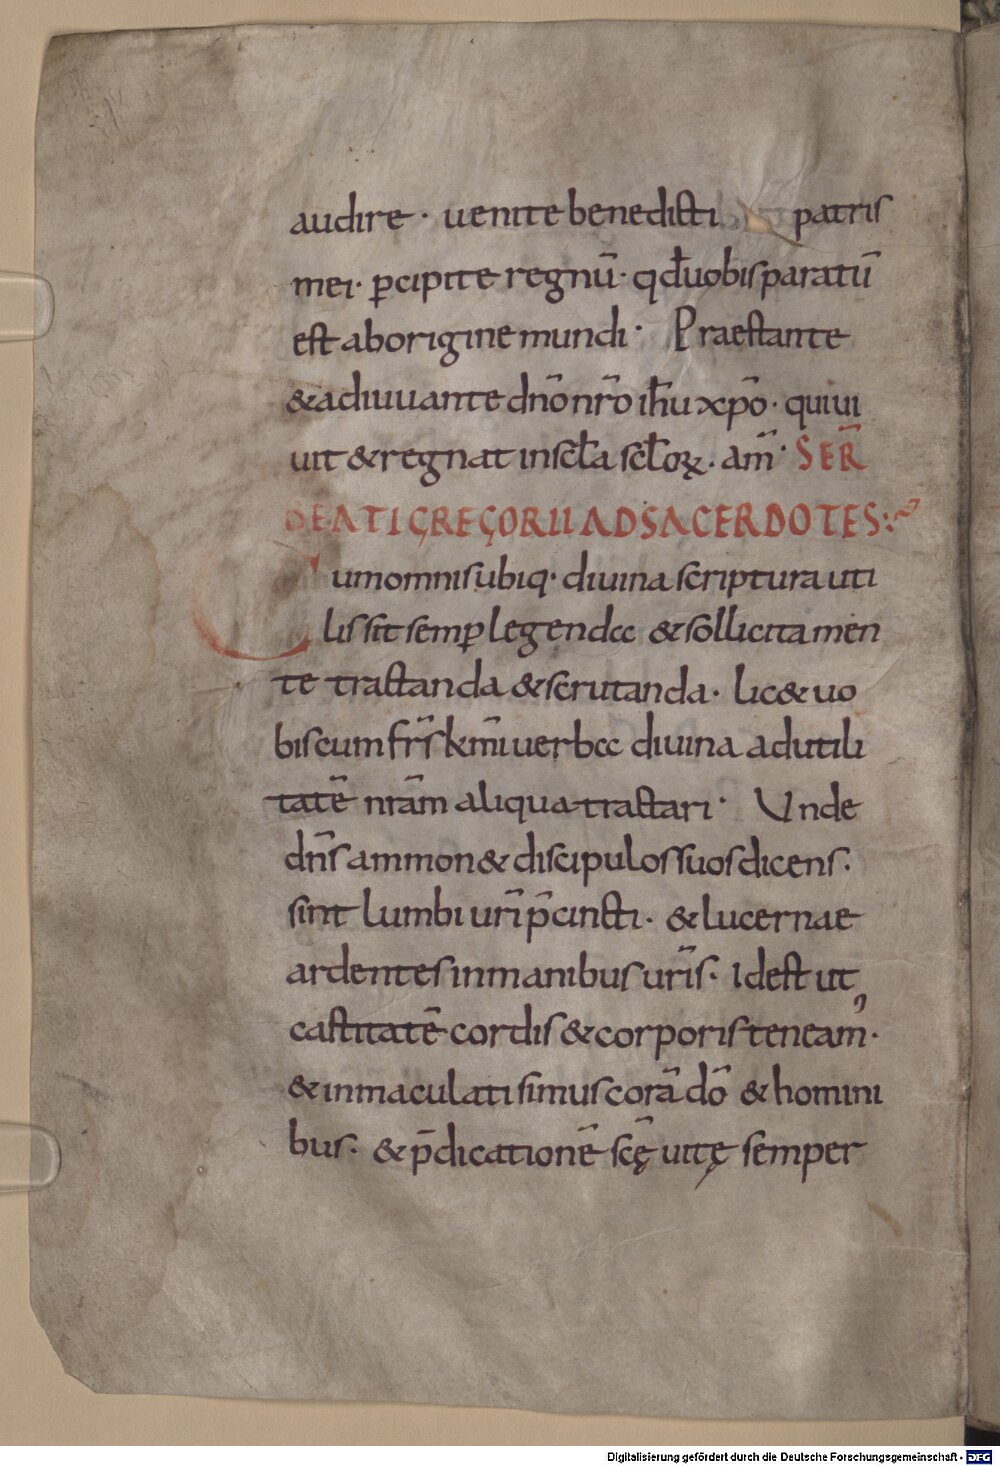 audire · uenite benedicti patris
mei · ꝑcipite regnū · qđ uobis paratū
est ab origine mundi · Praestante
& adiuuante dn̄o nr̄o ih̄u xp̄o · qui ui
uit & regnat in sc̄la sc̄loꝝ · am̄ · SER̄
BEATI GREGORII AD SACERDOTES :~
Cum omnis ubiq· diuina scriptura uti
lis sit semꝑ legenda & sollicita men
te tractanda & scrutanda · lic& uo
biscum fr̄s km̄i uerba diuina ad utili
tatē nr̄am aliqua tractari · Unde
dn̄s ammon& discipulos suos dicens ·
sint lumbi uri̅ p̄cincti · & lucernae
ardentes in manibus ur̄is · Id est ut
castitatē cordis & corporis teneam᾿ ·
& inmaculati simus corā dō & homini
bus · & p̄dicationē sc̄ę uitę semper
Digitalisierung gefördert durch die Deutsche Forschungsgemeinschaft · DFG